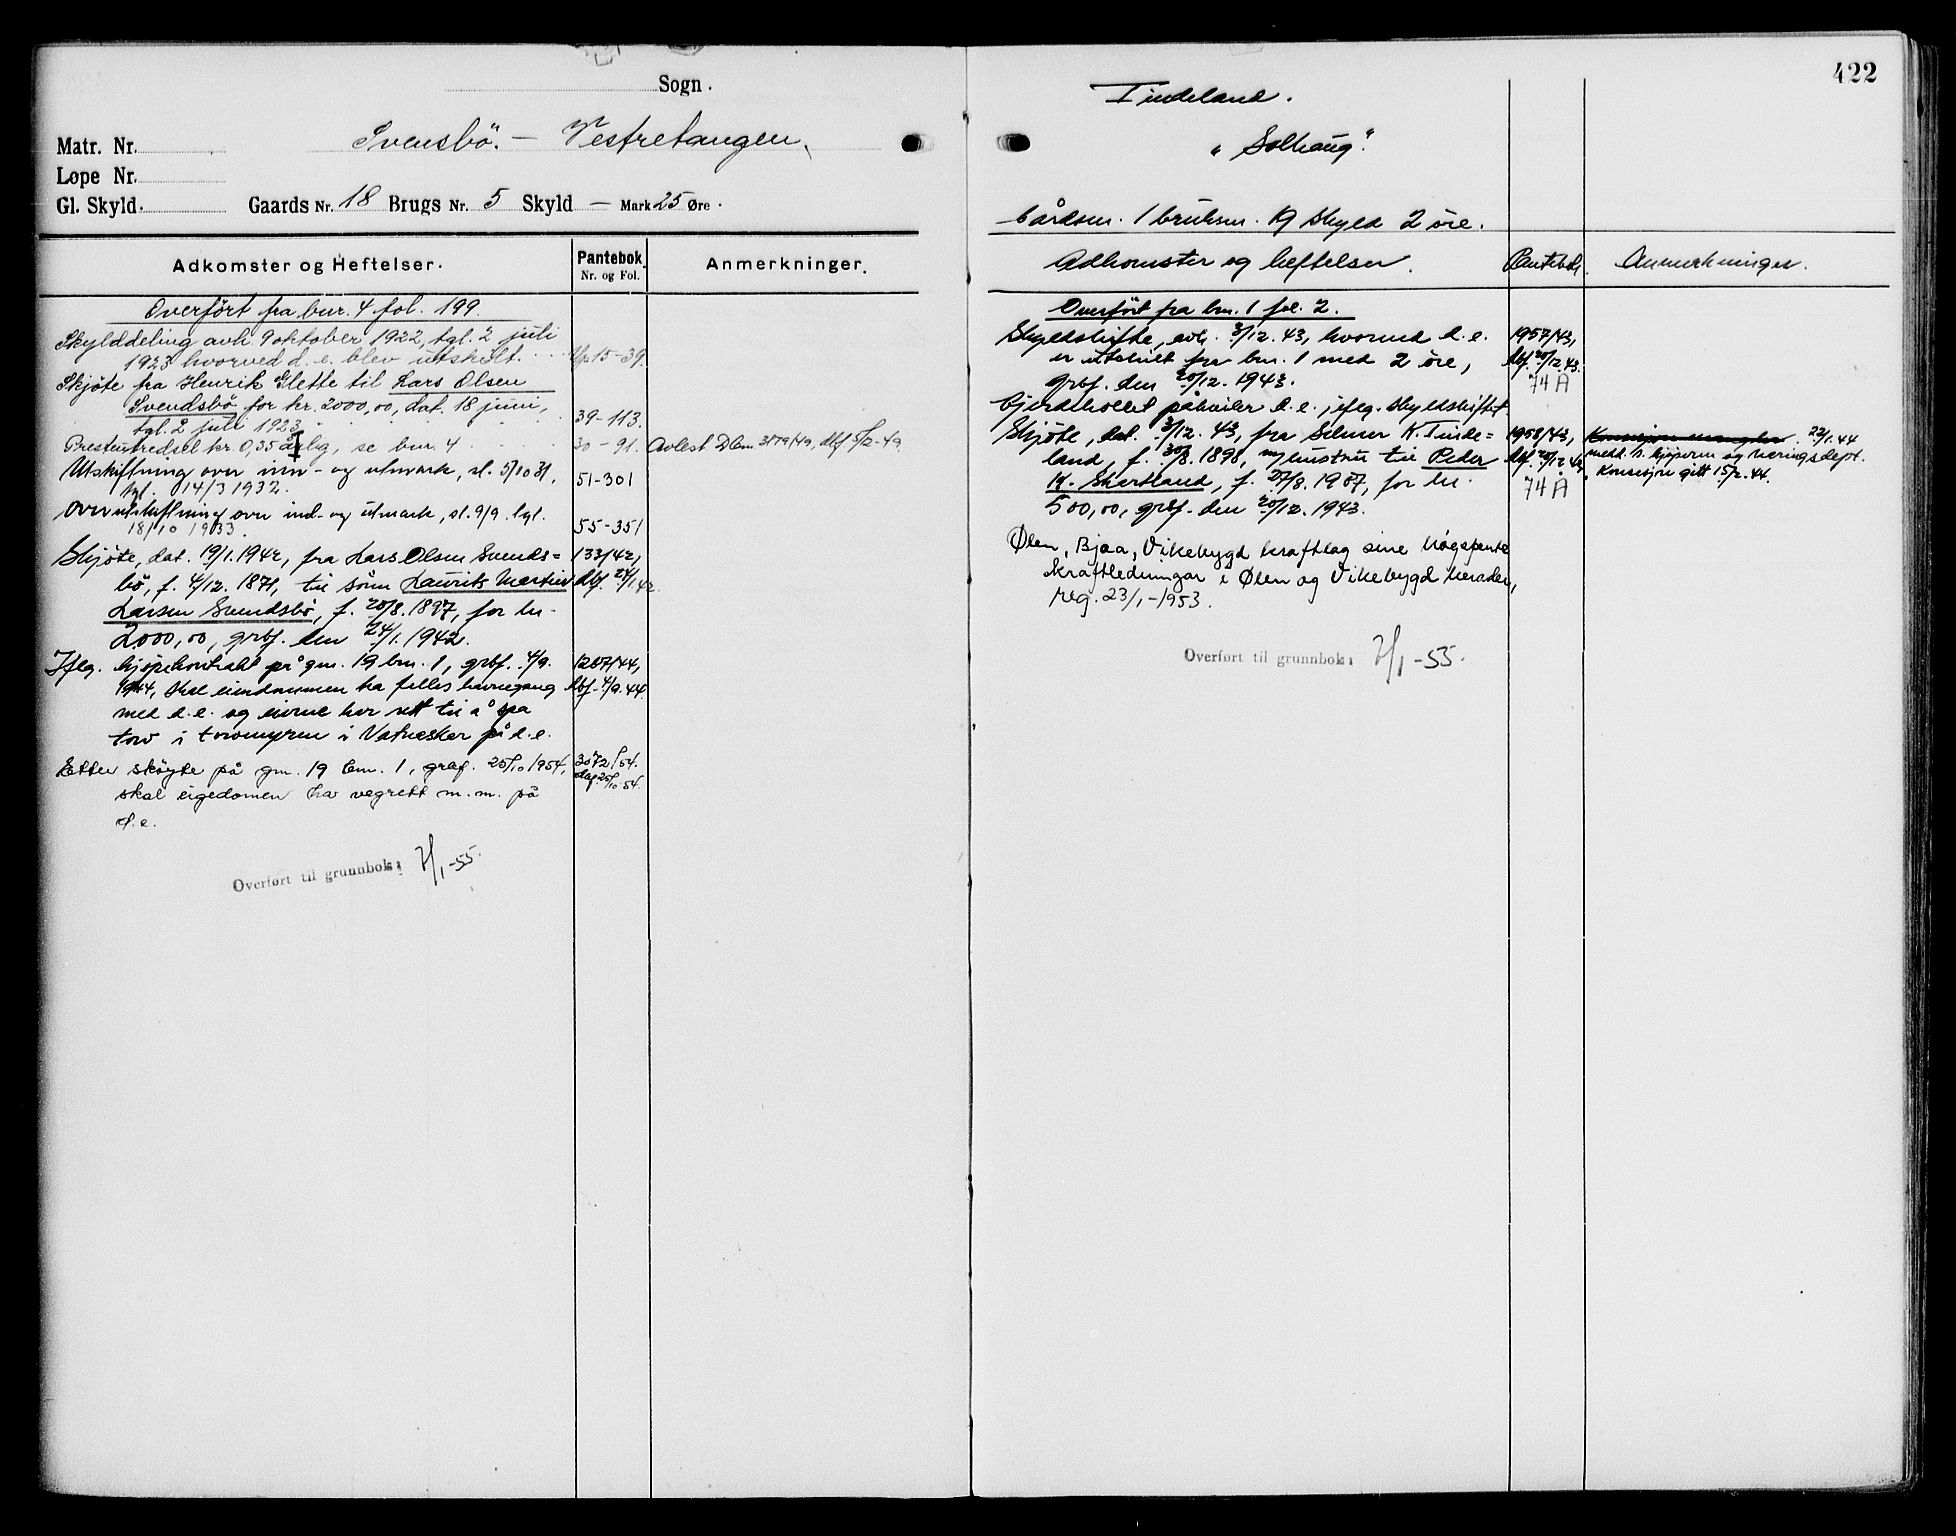 Sogn.
Matr. Nr.
Svensbö. – Vestretangen.
Lope Nr.
Gl. Skyld. Gaards Nr. 18 Brugs Nr. 5 Skyld — Mark 25 Øre.
Adkomster og Heftelser. Pantebok. Nr. og Fol. Anmerkninger.
Overfört fra bnr. 4 fol. 199.
Skylddeling avh. 9 oktober 1922, tgl. 2 juli
1923 hvorved d. e. blev utskilt. 15-39.
Skjöte fra Henrik Glette til Lars Olsen
Svendsbö for kr. 2000,00, dat. 18 juni,
tgl. 2 juli 1923 39-113.
Presteutredsel kr. 0,35 årlig, se bnr. 4 30-91. Avlest Dbnr. 3179/49, dbf 5/12-49
Utskiftning over inn- og utmark, sl. 5/10 31,
tgl. 14/3 1932. 51-301
Overutskiftning over ind- og utmark, sl. 9/9. tgl.
18/10 1933. 55-351
Skjöte, dat. 19/1. 1942, fra Lars Olsen Svends= 133/42,
bö, f. 4/12. 1871, til sönn Laurits Martin dbf. 24/1 42.
Larsen Svendsbö, f. 20/8. 1897, for kr.
2000,00, grbf. den 24/1. 1942.
Ifög. kjöpekontrakt på gnr. 19 bnr. 1, grbf. 4/9. 1287/44,
1944, skal eiendommen ha felles havnegang dbf. 4/9. 44.
med d. e. og eierne har rett til å spa
torv i torvmyren i Vatnesker på d. e.
Etter sköyte på gnr. 19 bnr. 1, graf. 25/10 1954, 3072/54.
skal eigedomen ha vegrett m. m. på dag. 25/10 54.
d. e.
Overført til grunnbok: 7/1-55.
422
Tindeland.
"Solhaug".
Gårdsnr. 1 bruksnr. 19 skyld 2 öre.
Adkomster og heftelser. Pantebok. Anmerkninger.
Overfört fra bnr. 1 fol. 2.
Skyldskifte, avh. 3/12. 43, hvorved d. e. 1957/43,
er utskilt fra bnr. 1 med 2 öre, dbf. 20/12. 43.
grbf. den 20/12. 1943. 74 A
Gjerdeholdet påhviler d. e. jfög. skyldskiftet.
Skjöte, dat. 3/12. 43, fra Selmer K. Tinde= 1958/43, Konsesjon mangler. 22/1. 44
land, f. 30/8. 1890, m/hustru til Peder dbf. 20/12 43 medd. t. kjöperen og næringsdept.
K. Skartland, f. 27/8. 1907, for kr. 74 A Konsesjon gitt 15/2. 44.
500,00, grbf. den 20/12. 1943.
Ølen, Bjoa, Vikebygd kraftlag sine högspente
kraftledningar i Ølen og Vikebygd herader,
reg. 23/1-1953.
Overført til grunnbok: 7/1-55.